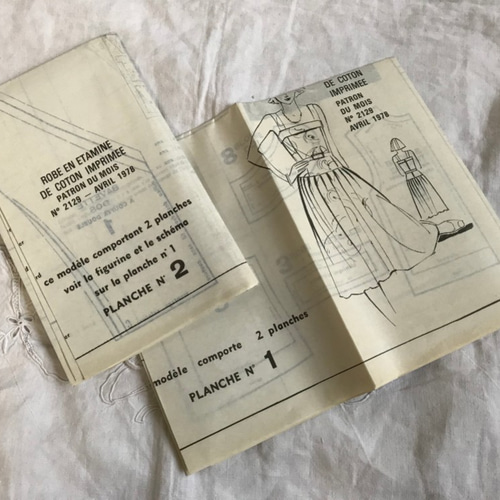 ROBE EN ETAMINE
DE COTON IMPRIMEE
PATRON DU MOIS
N° 2129 – AVRIL 1978
ce modèle comportant 2 planches
voir la figurine et le schéma
sur la planche n° 1
PLANCHE N° 2
DE COTON
IMPRIMEE
PATRON
DU MOIS
N° 2129
AVRIL 1978
modèle comporte 2 planches
PLANCHE N° 1